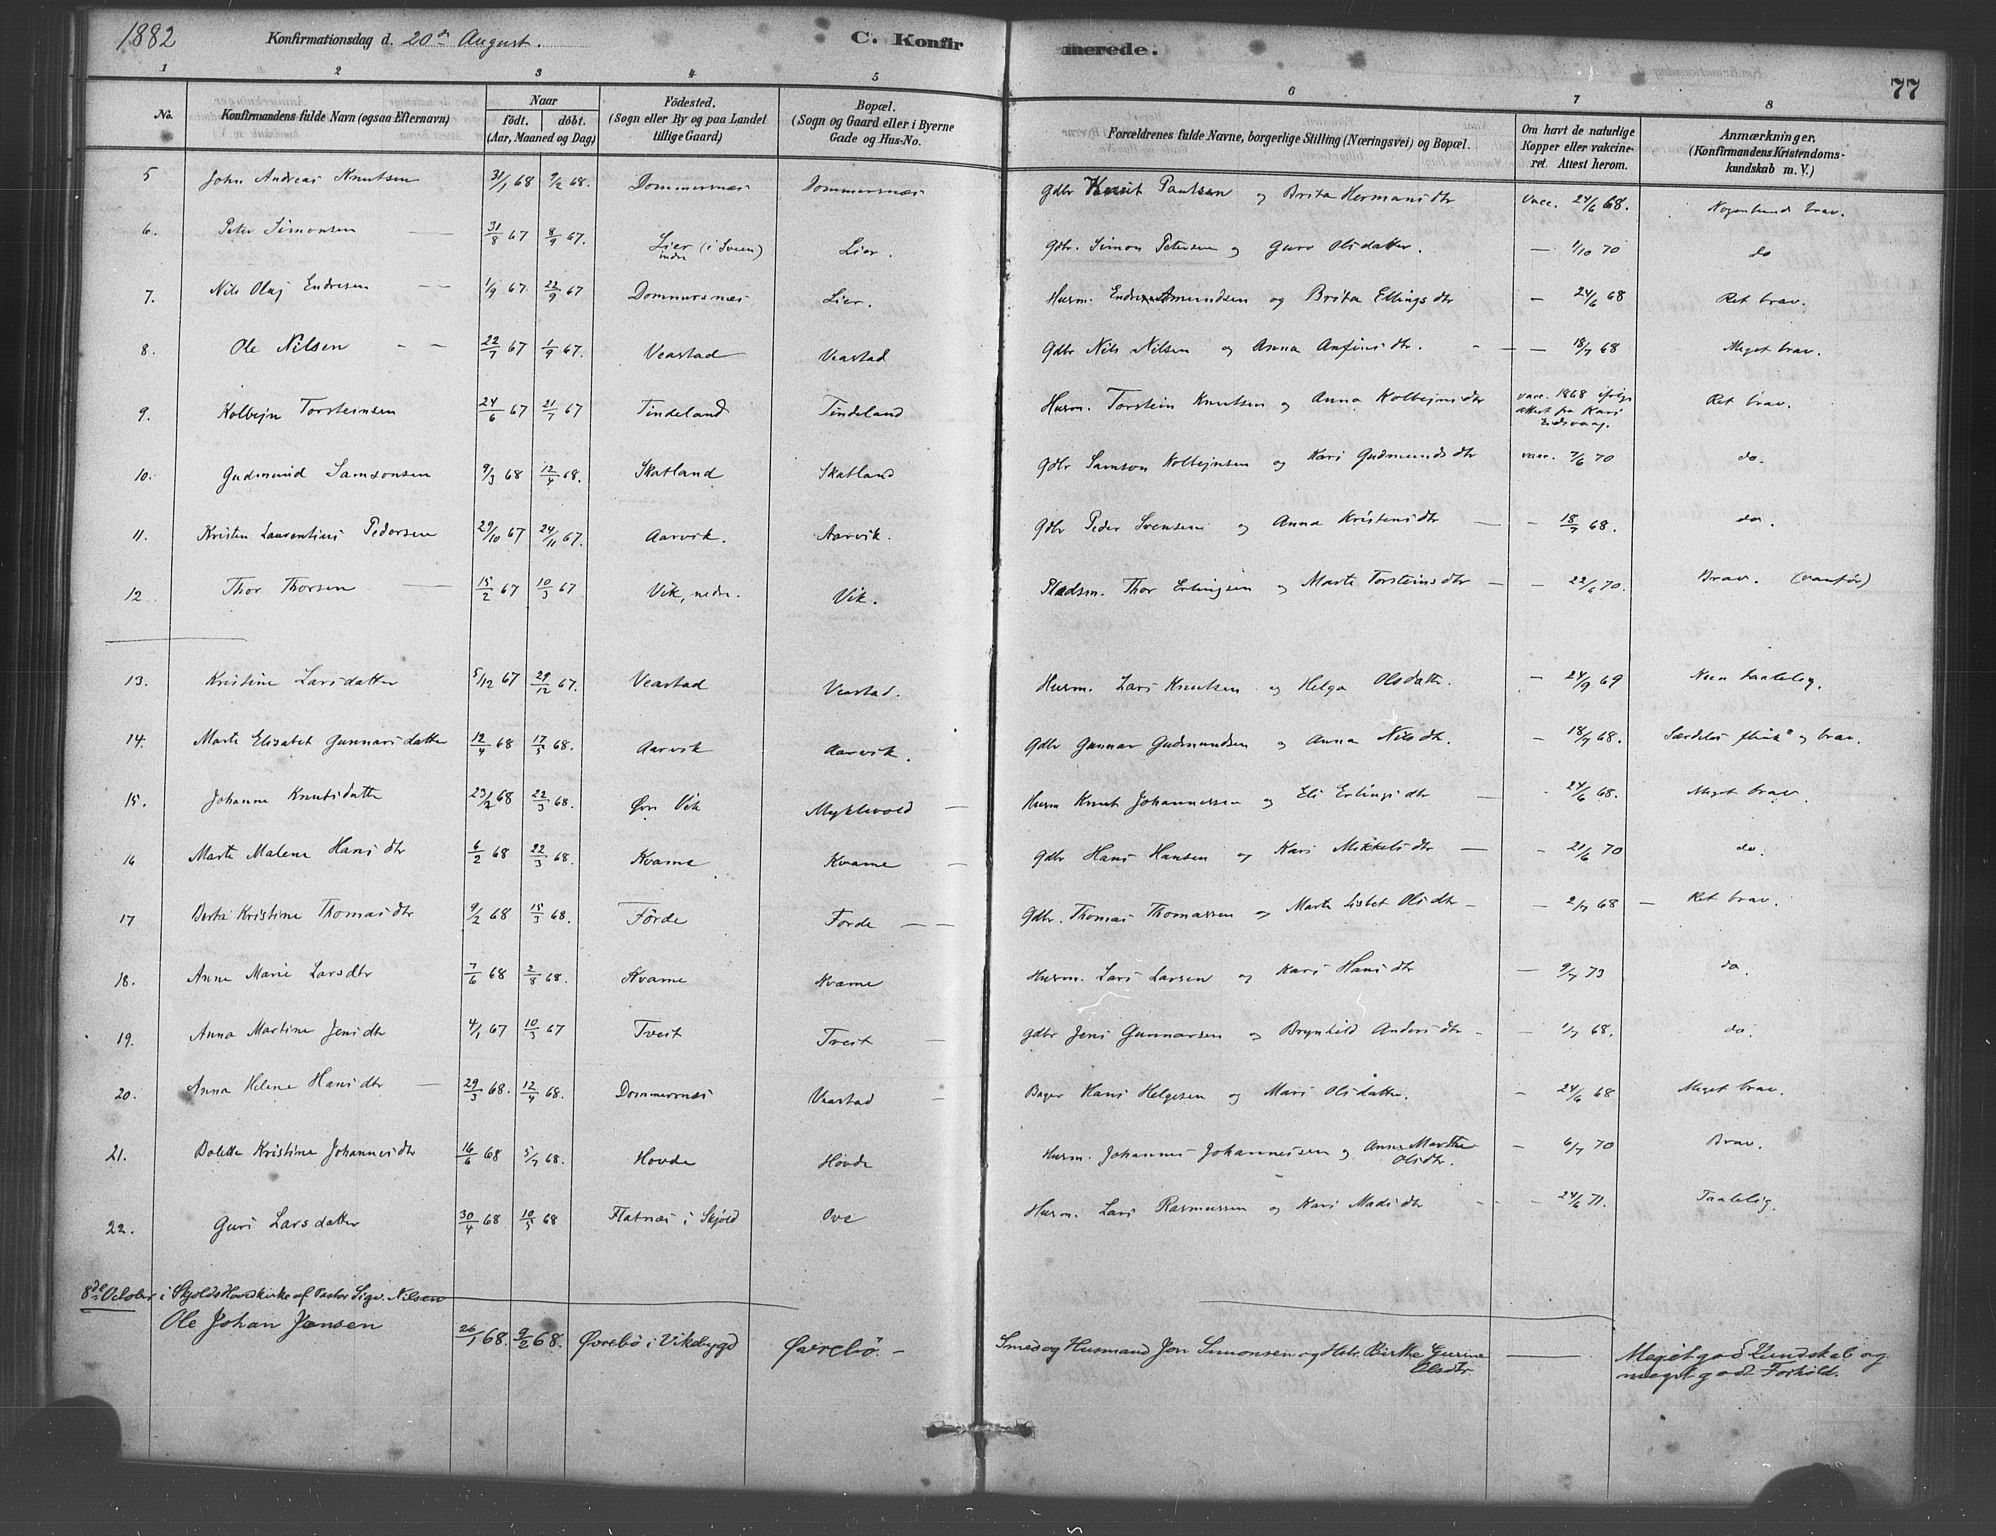 1882 Konfirmationsdag d. 20de August. C. Konfir merede. 77
1 2 3 4 5 6 7 8
No. Konfirmandens fulde Navn (ogsaa Efternavn) Naar födt. döbt. (Aar, Maaned og Dag) Födested. (Sogn eller By og paa Landet tillige Gaard) Bopæl. (Sogn og Gaard eller i Byerne Gade og Hus-No. Forældrenes fulde Navne, borgerlige Stilling (Næringsvei) og Bopæl. Om havt de naturlige Kopper eller vaccineret. Attest herom. Anmærkninger, (Konfirmandens Kristendomskundskab m. V.)
5 John Andreas Knutsen 31/1 68 9/2 68. Dommersnæs Dommersnæs Gdbr Knut Paulsen og Brita Hermansdtr vacc. 24/6 68. Nogenlunde brav.
6. Peter Simonsen — 31/8 67 8/9 67. Lier (i Sveen) indre Lier. Gdbr. Simon Petersen og Guro Olsdatter. — 1/10 70 do
7. Nils Olaj Endresen — — 1/9 67. 22/9 67 Dommersnæs Lier. Husm. Endre Amundsen og Brita Ellingsdtr — 24/6 68 Ret brav.
8. Ole Nilsen — — 22/7 67 1/9 67. Veastad Veastad Gdbr Nils Nilsen og Anna Anfinsdtr. — — — 18/7 68 Meget brav.
9. Kolbejn Torsteinsen 24/6 67 21/7 67 Tindeland Tindeland Husm. Torstein Knutsen og Anna Kolbejnsdtr vacc. 1868 ifølge attest fra Kari Eidsvaag. Ret brav.
10. Gudmund Samsonsen 9/3 68 12/4 68. Skatland Skatland Gdbr Samson Kolbejnsen og Kari Gudmundsdtr vacc. 7/6 70 do.
11. Kristen Laurentius Pedersen 29/10 67 24/11 67. Aarvik. Aarvik. Gdbr Peder Svensen og Anna Kristensdtr — - 18/7 68. do.
12 Thor Thorsen — 15/2 67 10/3 67 Vik, nedre. Vik. Pladsm. Thor Erlingsen og Marte Torsteinsdtr — - 22/6 70. Brav. (vanför)
13. Kristine Larsdatter 5/12 67 29/12 67. Veastad Veastad. Husm. Lars Knutsen og Helga Olsdatter. — 24/9 69 taalelig.
14. Marte Elisabet Gunnarsdatter 12/4 68 17/5 68. Aarvik Aarvik. Gdbr Gunnar Gudmundsen og Anna Nilsdtr. — 18/7 68. Særdeles flink og brav.
15. Johanne Knutsdatter 23/2 68 22/3 68. Øvr Vik Myklevold — Husm Knut Johannessen og Eli Erlingsdtr — - 24/6 68. Meget brav.
16 Marte Malena Hansdtr 6/2 68 22/3 68. Kvame Kvame — Gdbr Hans Hansen og Kari Mikkelsdtr — - 21/6 70 do.
17 Berta Kristine Thomasdtr 9/2 68 15/3 68. Förde Förde — — Gdbr. Thomas Thomassen og Marte Lisbet Olsdtr — - 2/7 68 — Ret brav.
18. Anne Marie Larsdtr 7/6 68 2/8 68. Kvame Kvame Husm. Lars Larsen og Kari Hansdtr — 9/7 73 do.
19. Anna Martine Jensdtr 4/1 67 10/3 67 Tveit Tveit — Gdbr Jens Gunnarsen og Brynhild Andersdtr - — 1/7 68. do.
20. Anna Helene Hansdtr — 29/3 68. 12/4 68. Dommersnæs Veastad — Bager Hans Helgesen og Mari Olsdatter. — 24/6 68 Meget brav.
21. Bolette Kristine Johannesdtr 16/6 68 5/7 68. Hovde Hovde Husm. Johannes Johannessen og Anne Marthe Olsdtr. — 6/7 70 Brav.
22. Guri Larsdatter 30/4 68 10/5 68 Flatnæs i Skjold Ove Husm. Lars Rasmussen og Kari Madsdtr - - 24/6 71. Taalelig.
8de October i Skjolds Hovedkirke af Pastor Sigv. Nilsen
Ole Johan Jansen 26/1 68. 9/2 68. Øvrebö i Vikebygd Øvrebö. — Smed og Husmand Jon Simonsen og Hstr. Birthe Gurine Olsdtr. — Meget god Kundskab og meget godt Forhold.